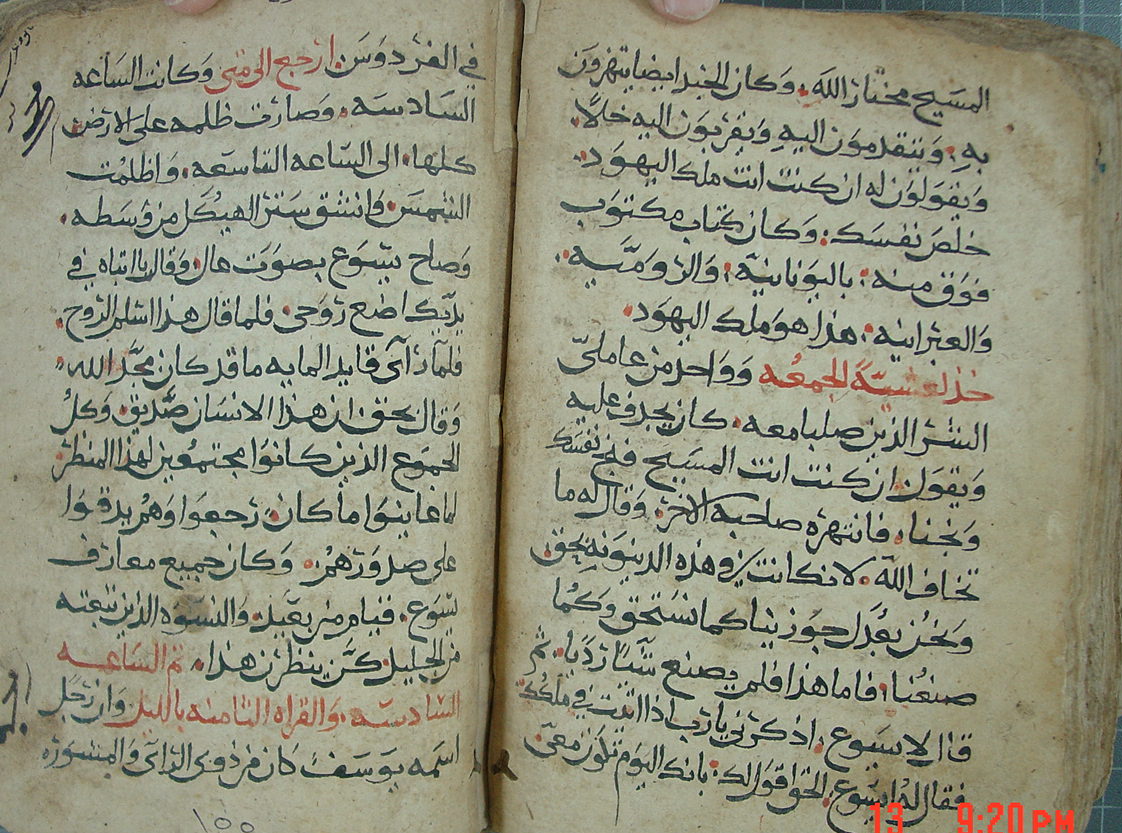 المسيح مختار الله. وكان الجند ايضا يتهزون
به. ويتقدمون اليه ويقربون اليه خلاً.
ويقولون له ان كنت انت ملك اليهود.
خلص نفسك. وكان كتاب مكتوب
فوق منه. باليونانية. والرومية.
والعبرانيه. هذا هو ملك اليهود.
خذ لعشية الجمعه وواحد من عاملي
الشر الذين صلبا معه. كان يجدف عليه
ويقول ان كنت انت المسيح فنج نفسك
ونجنا. فانتهره صاحبه الاخر. وقال له ما
تخاف الله. لانك انت في هذه الدينونه بحق
ونحن بعدل جوزينا كما نستحق وكما
صنعنا. فاما هذا فلم يصنع شيًا رديا. ثم
قال لايسوع. اذكرني يارب اذا اتيت في ملكك
فقال له ايسوع. الحق اقول لك. بانك اليوم تكون معي
في الفردوس. ارجع الى متى وكانت الساعه
السادسه. وصارت ظلمه على الارض
كلها. الى الساعه التاسعه. واظلمت
الشمس. وانشق ستر الهيكل من وسطه.
وصاح يسوع بصوت عال. وقال يا ابتاه في
يديك اضع روحي. فلما قال هذا اسلم الروح.
فلما رآى قايد المايه ما قد كان مجّد الله.
وقال بحق ان هذا الانسان صديق. وكل
الجموع الذين كانوا مجتمعين لهذا المنظر
لما عاينوا ما كان. رجعوا وهم يدقوا
على صدورهم. وكان جميع معارف
يسوع. قيام من بعيد. والنسوه الذين تبعته
من الجليل. كن ينظرن هذا. تم الساعه
السادسه. والقراه الثامنه بالليل وان رجل
اسمه يوسف كان من ذوى الراى والمشوره
١٥٥
13 9:20 PM